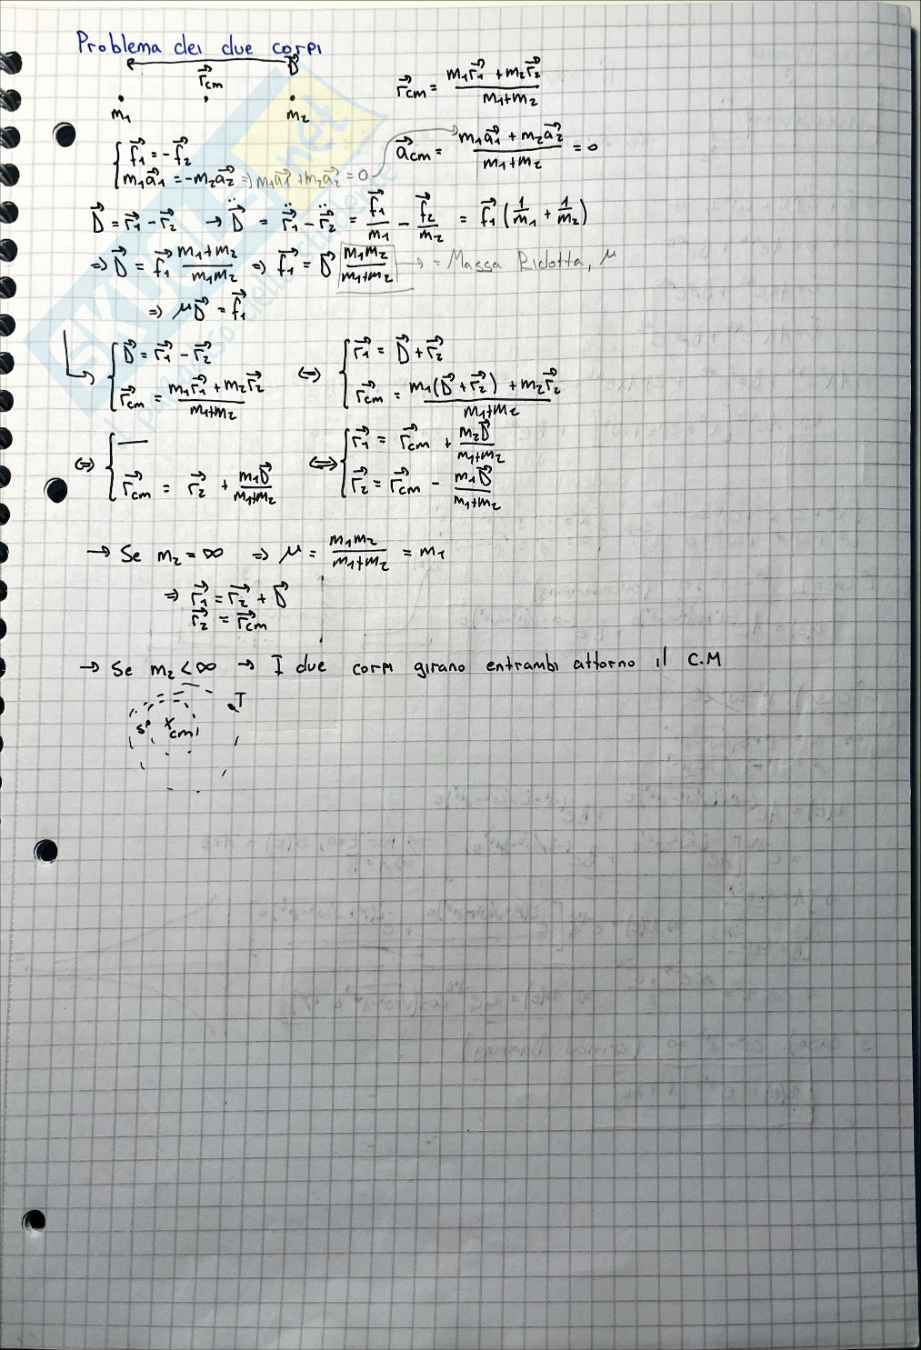 Problema dei due corpi
D⃗
r⃗cm
m₁ m₂
r⃗cm = (m₁r⃗₁ + m₂r⃗₂)/(m₁+m₂)
{ f⃗₁ = -f⃗₂
{ m₁a⃗₁ = -m₂a⃗₂ ⇒ m₁a⃗₁ + m₂a⃗₂ = 0
a⃗cm = (m₁a⃗₁ + m₂a⃗₂)/(m₁+m₂) = 0
D⃗ = r⃗₁ - r⃗₂ → D̈⃗ = r̈⃗₁ - r̈⃗₂ = f⃗₁/m₁ - f⃗₂/m₂ = f⃗₁ (1/m₁ + 1/m₂)
⇒ D⃗ = f⃗₁ (m₁+m₂)/(m₁m₂) ⇒ f⃗₁ = D⃗ (m₁m₂)/(m₁+m₂) → = Massa Ridotta, μ
⇒ μD⃗ = f⃗₁
{ D⃗ = r⃗₁ - r⃗₂ ⇔ { r⃗₁ = D⃗ + r⃗₂
{ r⃗cm = (m₁r⃗₁ + m₂r⃗₂)/(m₁+m₂) { r⃗cm = (m₁(D⃗ + r⃗₂) + m₂r⃗₂)/(m₁+m₂)
⇔ { — ⇔ { r⃗₁ = r⃗cm + m₂D⃗/(m₁+m₂)
{ r⃗cm = r⃗₂ + m₁D⃗/(m₁+m₂) { r⃗₂ = r⃗cm - m₁D⃗/(m₁+m₂)
→ Se m₂ = ∞ ⇒ μ = (m₁m₂)/(m₁+m₂) = m₁
⇒ r⃗₁ = r⃗₂ + D⃗
r⃗₂ = r⃗cm
→ Se m₂ < ∞ → I due corpi girano entrambi attorno il C.M
T
S x cm